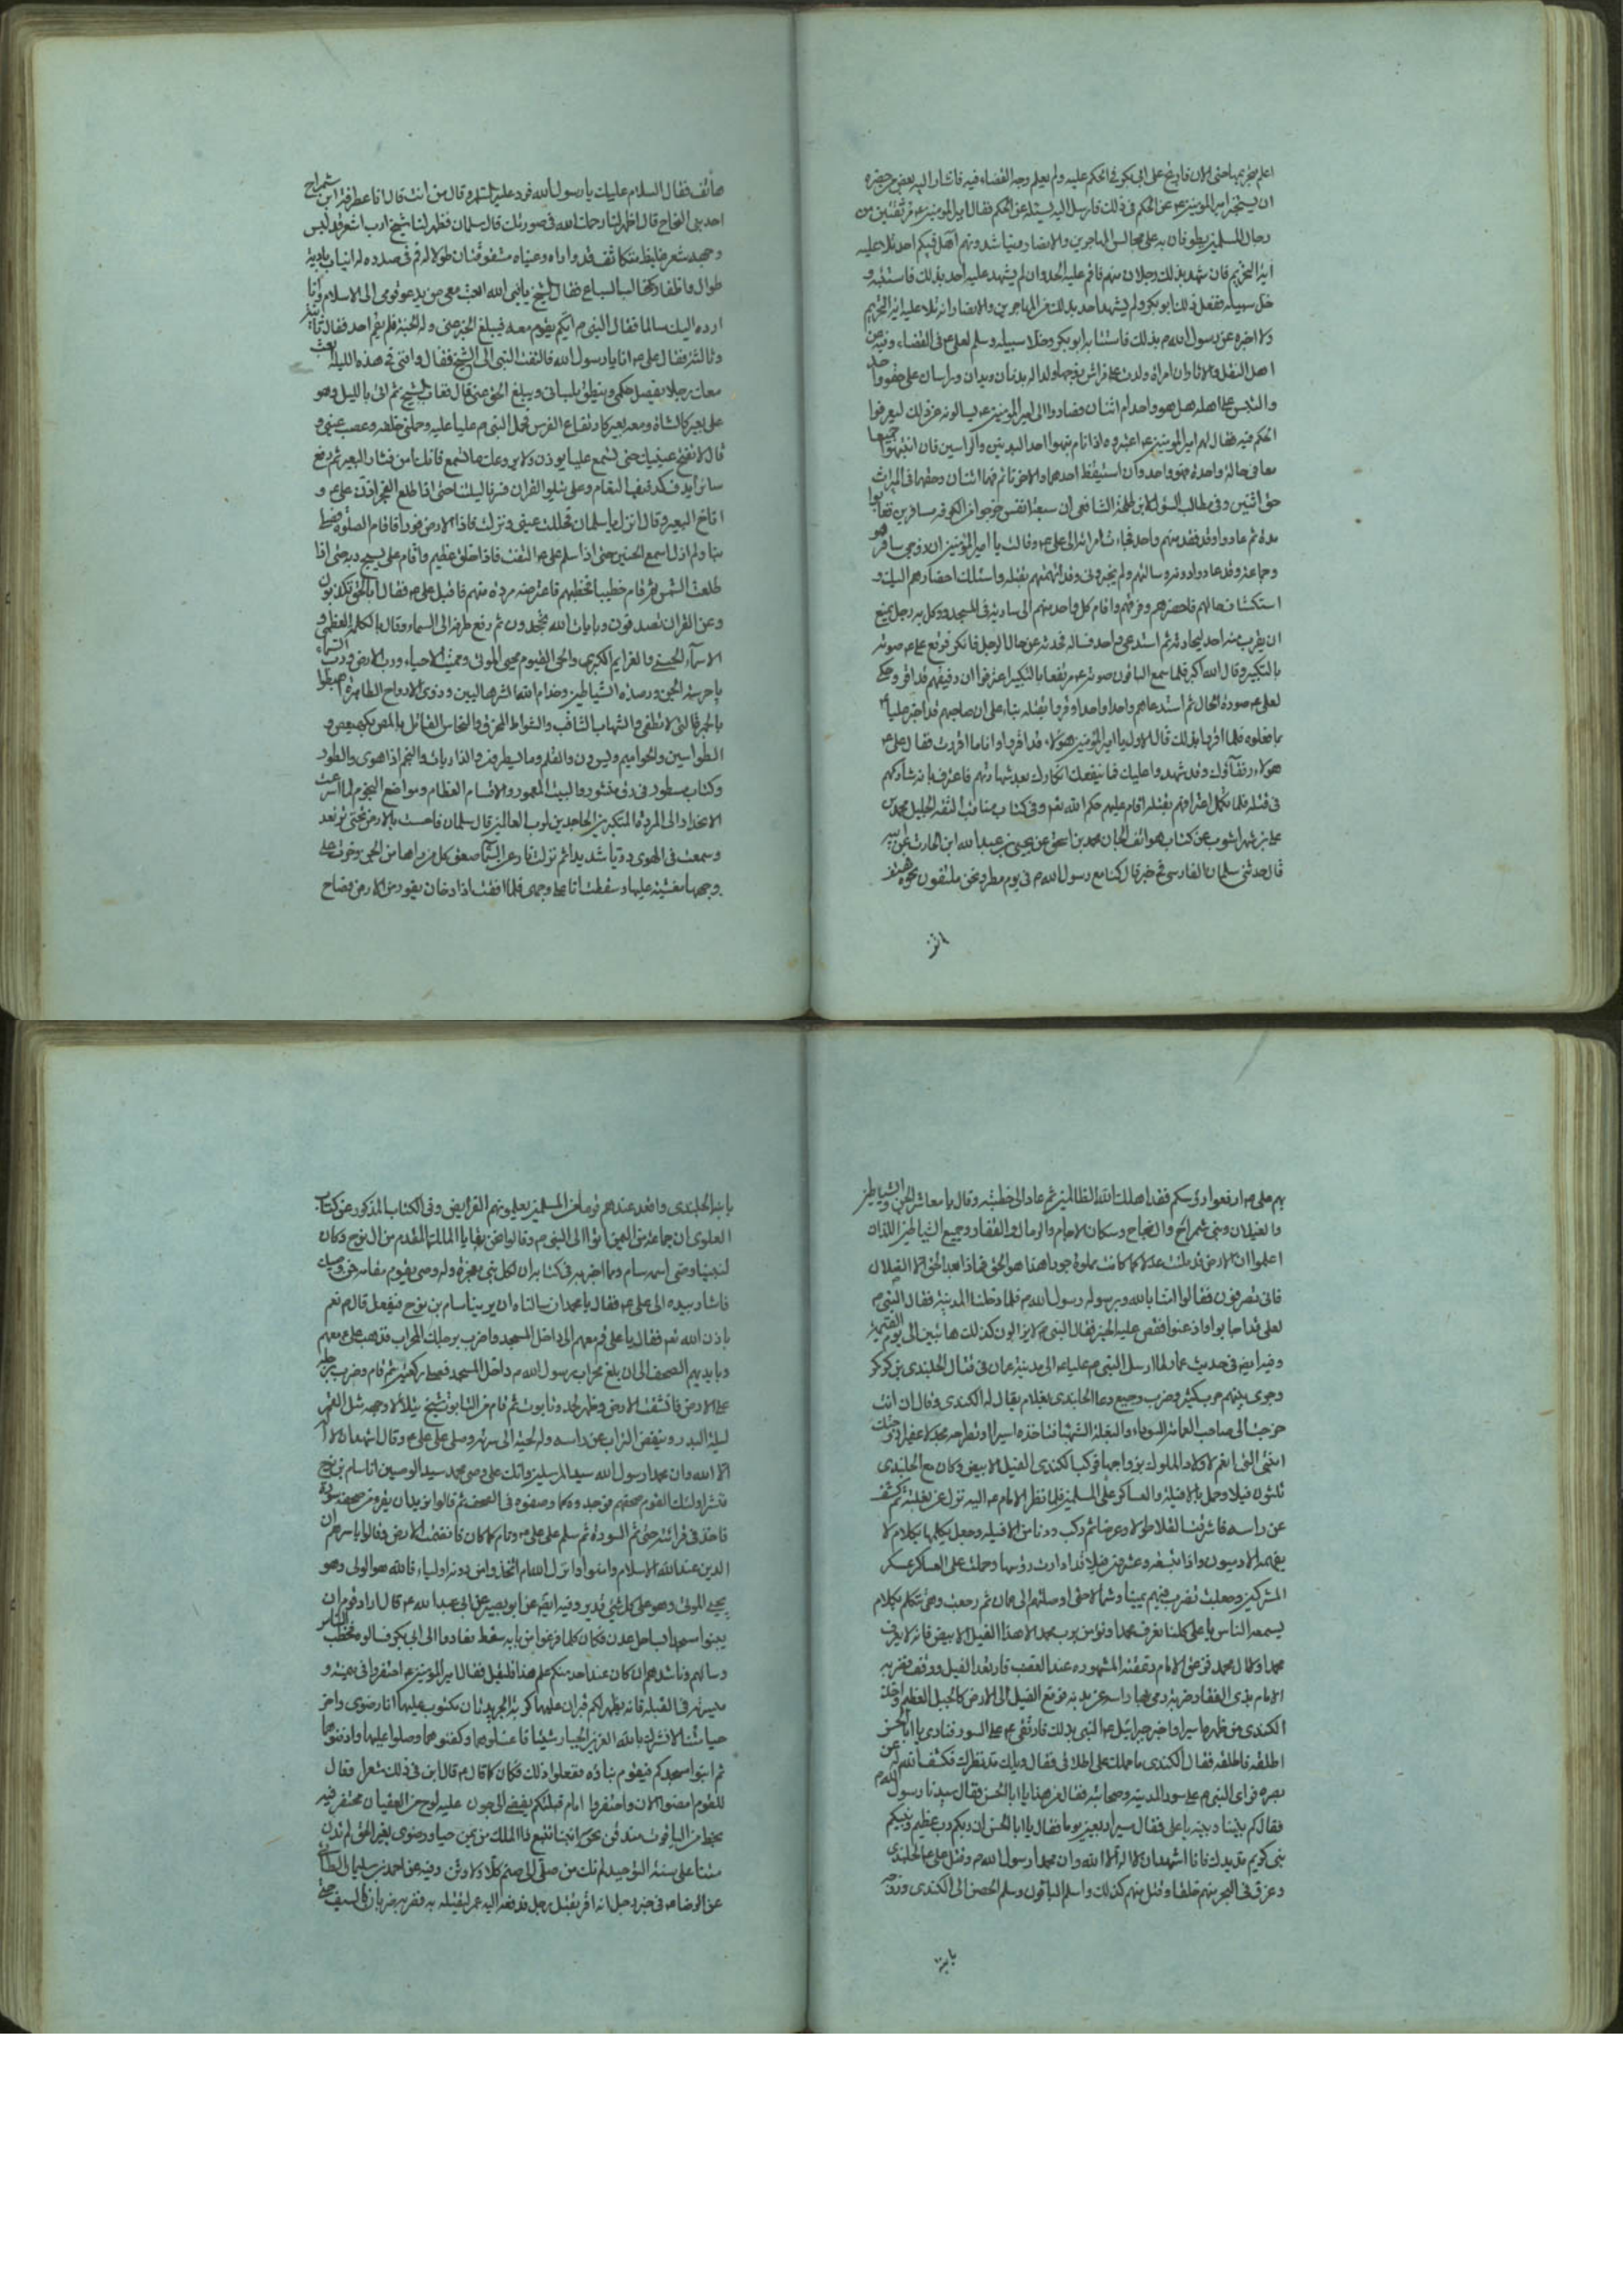 اعلم بتحريمها حتى الان فارتج على ابي بكر في الحكم عليه ولم يعلم وجه القضاء فيه فاشار اليه بعض من حضره
ان يستخبر امير المومنين ع عن الحكم في ذلك فارسل اليه يسئله عن الحكم فقال امير المومنين ع مر ثقتين من
رجال المسلمين يطوفان به على مجالس المهاجرين والانصار ويناشدونهم الله هل فيكم احد تلا عليه
اية التحريم فان شهد بذلك رجلان منهم فاقم عليه الحد وان لم يشهد عليه احد بذلك فاستتبه و
خل سبيله ففعل ذلك ابو بكر ولم يشهد احد بذلك من المهاجرين والانصار انه تلا عليه اية التحريم
ولا اخبره عن رسول الله ص بذلك فاستتابه ابو بكر وخلا سبيله وسلم لعلي ع في القضاء وفيه عن
اهل النقل والاثار ان امراة ولدت على فراش زوجها ولدا له بدنان وراسان على حقو واحد
والتبس على اهله هل هو واحد ام اثنان فصاروا الى امير المومنين ع يسالونه عن ذلك ليعرفوا
الحكم فيه فقال لهم امير المومنين ع اعتبروه اذا نام ثم نبهوا احد البدنين والراسين فان انتبهوا جميعا
معا في حالة واحدة فهو واحد وان استيقظ احدهما والاخر نائم فهما اثنان وحقهما في الميراث
حق اثنين وفي مطالب السؤل لابن طلحة الشافعي ان سبعة انفس خرجوا من الكوفة مسافرين فغابوا
مدة ثم عادوا وقد فقد منهم واحد فجاءت امراته الى علي ع وقالت يا امير المؤمنين ان زوجي سافر هو
وجماعة وقد عادوا دونه وسالتهم ولم يخبروني وقد اتهمتهم بقتله واسئلك احضارهم اليك و
استكشاف حالهم فاحضرهم وفرقهم واقام كل واحد منهم الى سارية في المسجد ووكل به رجل يمنع
ان يقرب منه احد ليحادثه ثم استدعى واحد فساله فحدثه عن حال الرجل فانكر فرفع علي ع صوته
بالتكبير وقال الله اكبر فلما سمع الباقون صوته ع مرتفعا بالتكبير اعترفوا ان رفيقهم قد اقر وحكى
لعلي ع صورة الحال ثم استدعاهم واحدا واحدا وقروا بقتله بناء على ان صاحبهم قد اخبر عليا ع
بما فعلوه فلما اقروا بذلك قال الاول يا امير المومنين هؤلاء قد اقروا وانا ما اقررت فقال علي ع
هولاء رفقاؤك وقد شهدوا عليك فما ينفعك انكارك بعد شهادتهم فاعترف انه شاركهم
في قتله فلما تكمل اعترافهم بقتله اقام عليهم حكم الله تع وفي كتاب مناقب الثقة الجليل محمد بن
علي بن شهراشوب عن كتاب هواتف الجان محمد بن اسحق عن يحيى بن عبد الله ابن الحارث عن ابيه
قال حدثني سلمان الفارسي في خبر قال كنا مع رسول الله ص في يوم مطر ونحن ملتفون نحوه هتف
هاتف فقال السلام عليك يا رسول الله فرد عليه السلم وقال من انت قال انا عطرفة ابن شمراخ
احد بني النجاح قال اظهر لنا رحمك الله في صورتك قال سلمان فظهر لنا شيخ ازب اشعر قد لبس
وجهه شعر غليظ متكاثف قد واراه وعيناه مشقوقتان طولا له فم في صدره له انياب بادية
طوال واظفار كمخالب السباع فقال الشيخ يا نبي الله ابعث معي من يدعو قومي الى الاسلام وانا
ارده اليك سالما فقال النبي ص ايكم يقوم معه فيبلغ الجن عني وله الجنة فلم يقم احد فقال ثانية
وثالثة فقال علي ع انا يا رسول الله فالتفت النبي الى الشيخ فقال وافني في هذه الليلة ابعث
معك رجلا يفصل حكمي وينطق بلساني ويبلغ الجن عني قال فغاب الشيخ ثم اتى بالليل وهو
على بعير كالشاة ومعه بعير كارتفاع الفرس فحمل النبي ص عليا عليه وحملني خلفه وعصب عيني و
قال لا تفتح عينيك حتى تسمع عليا يوذن ولا يروعك ما تسمع فانك امن فثار البعير ثم دفع
سائرا يدف كدفيف النعام وعلي يتلو القران فسرنا ليلتنا حتى اذا طلع الفجر اذن علي ع و
اناخ البعير وقال انزل يا سلمان فحللت عيني ونزلت فاذا الارض قوراء فاقام الصلوة وصلى
بنا ولم ازل اسمع الحنين حتى اذا سلم علي ع التفت فاذا خلق عظيم واقام علي يسبح ربه حتى اذا
طلعت الشمس ثم قام خطيبا فخطبهم فاعترضته مردة منهم فاقبل علي ع فقال ابالحق تكذبون
وعن القران تصدفون وبايات الله تجحدون ثم رفع طرفه الى السماء وقال بالكلمة العظمى و
الاسماء الحسنى والعزايم الكبرى والحي القيوم محيي الموتى ومميت الاحياء ورب الارض ورب السماء
يا حرسة الجن ورصدة الشياطين وخدام الله الشرهاليين وذوي الارواح الطاهرة اهبطوا
بالجمرة التي لا تطفى والشهاب الثاقب والشواظ المحرق والنحاس القاتل بالمص بكهيعص و
الطواسين والحواميم ويس ون والقلم وما يسطرون والذاريات والنجم اذا هوى والطور
وكتاب مسطور في رق منشور والبيت المعمور والاقسام العظام ومواضع النجوم لما اسرعت
الانحدار الى المردة المتكبرين الجاحدين لرب العالمين قال سلمان فاحست بالارض تحتي ترتعد
وسمعت في الهوى دويا شديدا ثم نزلت نار من السماء صعق كل من راها من الجن وخرت على
وجوهها مغشيه عليها وسقطت انا على وجهي فلما افقت اذا دخان يفور من الارض فصاح
بهم علي ع ارفعوا رؤسكم فقد اهلك الله الظالمين ثم عاد الى خطبته وقال يا معاشر الجن والشياطين
والغيلان وبني شمراخ وال نجاح وسكان الاجام والرمال والقفار وجميع الشياطين البلدان
اعلموا ان الارض قد ملئت عدلا كما كانت مملوة جورا هذا هو الحق فماذا بعد الحق الا الضلال
فانى تصرفون فقالوا امنا بالله وبرسوله رسول الله ص فلما دخلنا المدينة فقال النبي ص
لعلي ماذا اجابوا واذعنوا فقص عليه الخبر فقال النبي ص لا يزالون كذلك هائبين الى يوم القيمة
وفيه ايض في حديث عمار لما ارسل النبي ص عليا ع الى مدينة عمان في قتال الجلندى بن كركر
وجرى بينهم حرب كثير وضرب وجيع دعا الجلندى بغلام يقال له الكندي وقال ان انت
خرجت الى صاحب العمامة السوداء والبغلة الشهباء فتاخذه اسيرا وتطرحه مجدلا عفيرا زوجتك
ابنتي التي لم انعم لاولاد الملوك بزواجها فركب الكندي الفيل الابيض وكان مع الجلندى
ثلثون فيلا وحمل بالافيلة والعساكر على المسلمين فلما نظر الامام ع اليه نزل عن بغلته ثم كشف
عن راسه فاشرقت الفلا طولا وعرضا ثم ركب ودنا من الافيلة وجعل يكلمها بكلام لا
يفهمه الادميون واذا بتسعة وعشرين فيلا قد ادارت رؤسها وحملت على العساكر عسكر
المشركين وجعلت تضرب فيهم يمينا وشمالا حتى اوصلتهم الى عمان ثم رجعت وهي تتكلم بكلام
يسمعه الناس يا علي كلنا نعرف محمدا ونومن برب محمد الا هذا الفيل الابيض فانه لا يعرف
محمدا ولا ال محمد فزعق الامام زعقته المشهورة عند الغضب فارتعد الفيل ووقف فضربه
الامام بذي الفقار ضربة رمى بها راسه عن بدنه فوقع الفيل الى الارض كالجبل العظيم واخذ
الكندي من ظهره اسيرا واخبر جبرائيل ع النبي بذلك فارتقى ع على السور فنادى يا ابا الحسن
اطلقه فاطلقه فقال الكندي ما حملك على اطلاقي فقال ويلك مد نظرك فكشف الله عن
بصره فراى النبي ص على سور المدينة وصحابته فقال من هذا يا ابا الحسن فقال سيدنا رسول الله ص
فقال كم بيننا وبينه يا علي فقال مسيرة اربعين يوما فقال يا ابا الحسن ان ربكم رب عظيم ونبيكم
نبي كريم مد يدك فانا اشهد ان لا اله الا الله وان محمدا رسول الله ص وقتل علي ع الجلندى
وغرق في البحر منهم خلقا وقتل منهم كذلك واسلم الباقون وسلم الحصن الى الكندي وزوجه
بابنة
بابنة الجلندى واقعد عندهم قوما من المسلمين يعلمونهم الفرايض وفي الكتاب المذكور عن كتاب
العلوي ان جماعة من اليمن اتوا الى النبي ص وقالوا نحن بقايا الملك المقدم من ال نوح وكان
لنبينا وصي اسمه سام وما اخبر به في كتابه ان لكل نبي معجزة وله وصي يقوم مقامه فمن وصيك
فاشار بيده الى علي ع فقال يا محمد ان سالناه ان يرينا سام بن نوح فيفعل قال ص نعم
باذن الله تع فقال يا علي قم معهم الى داخل المسجد واضرب برجلك المحراب فذهب علي ع معهم
وبايديهم الصحف الى ان بلغ محراب رسول الله ص داخل المسجد فصلى ركعتين ثم قام وضرب برجله
على الارض فانشقت الارض وظهر لحد وتابوت ثم قام من التابوت شيخ يتلألأ وجهه مثل القمر
ليلة البدر وينفض التراب عن راسه وله لحية الى سرته وصلى على علي ع وقال اشهد ان لا اله
الا الله وان محمدا رسول الله سيد المرسلين وانك علي وصي محمد سيد الوصيين انا سام بن نوح
فنشر اولئك القوم صحفهم فوجدوه كما وصفوه في الصحف ثم قالوا نريد ان يقرء من صحفه سورة
فاخذ في قرائته حتى تم السورة ثم سلم على علي ع ونام كما كان فانضمت الارض فقالوا باسرهم ان
الدين عند الله الاسلام وامنوا وانزل الله ام اتخذوا من دونه اولياء فالله هو الولي وهو
يحيي الموتى وهو على كل شئ قدير وفيه ايض عن ابو بصير عن ابي عبد الله ع قال اراد قوم ان
يبنوا مسجدا بساحل عدن فكان كلما فرغوا من بنايه سقط فعادوا الى ابي بكر فسالوه فخطب الناس
وسالهم وناشدهم ان كان عند احد منكم علم هذا فليقل فقال امير المومنين ع احتفروا في ميمنته و
ميسرته في القبلة فانه يظهر لكم قبران عليهما كوبة الجريدتان مكتوب عليهما انا رضوى واختي
حيا متنا لا نشرك بالله العزيز الجبار شيئا فاغسلوهما وكفنوهما وصلوا عليهما وادفنوهما
ثم ابنوا مسجدكم فيقوم بناؤه ففعلوا ذلك فكان كما قال ع قال ابن في ذلك شعرا وقال
للقوم امضوا الان واحتفروا امام قبلتكم يفضي الى جون عليه لوح من العقيان محتفر فيه
بخط من الياقوت مندفن نحن ابنتا تبع ذا الملك من يمن حيا ورضوى بغير الحق لم ندن
متنا على سنة التوحيد لم نك من صلى الى صنم كلا ولا وثن وفيه عن احمد بن سليمان الطائي
عن الرضا ع في خبر رجل انه اقر بقتل رجل فدفعه اليه عمر ليقتله به فضربه ضربات بالسيف حتى